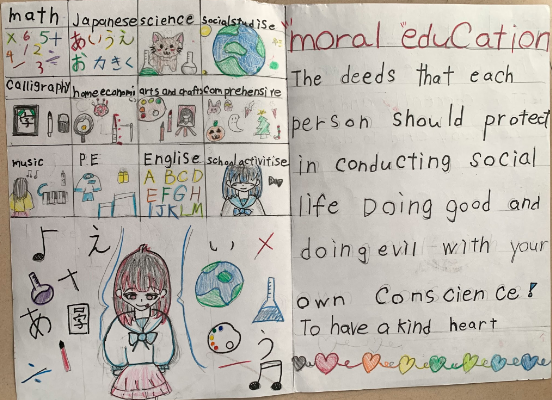 math Japanese science socialstudise
× 6 5 +
4 1 2
- 3 ÷
あいうえ
おかきく
Calligraphy home economi arts and crafts Comprehensive
music P.E Englise school activitise
A B C D
E F G H
I J K L M
え い ×
+
あ
う
÷
"moral education
The deeds that each
person should protect
in conducting social
life Doing good and
doing evil with your
own Conscience!
To have a kind heart